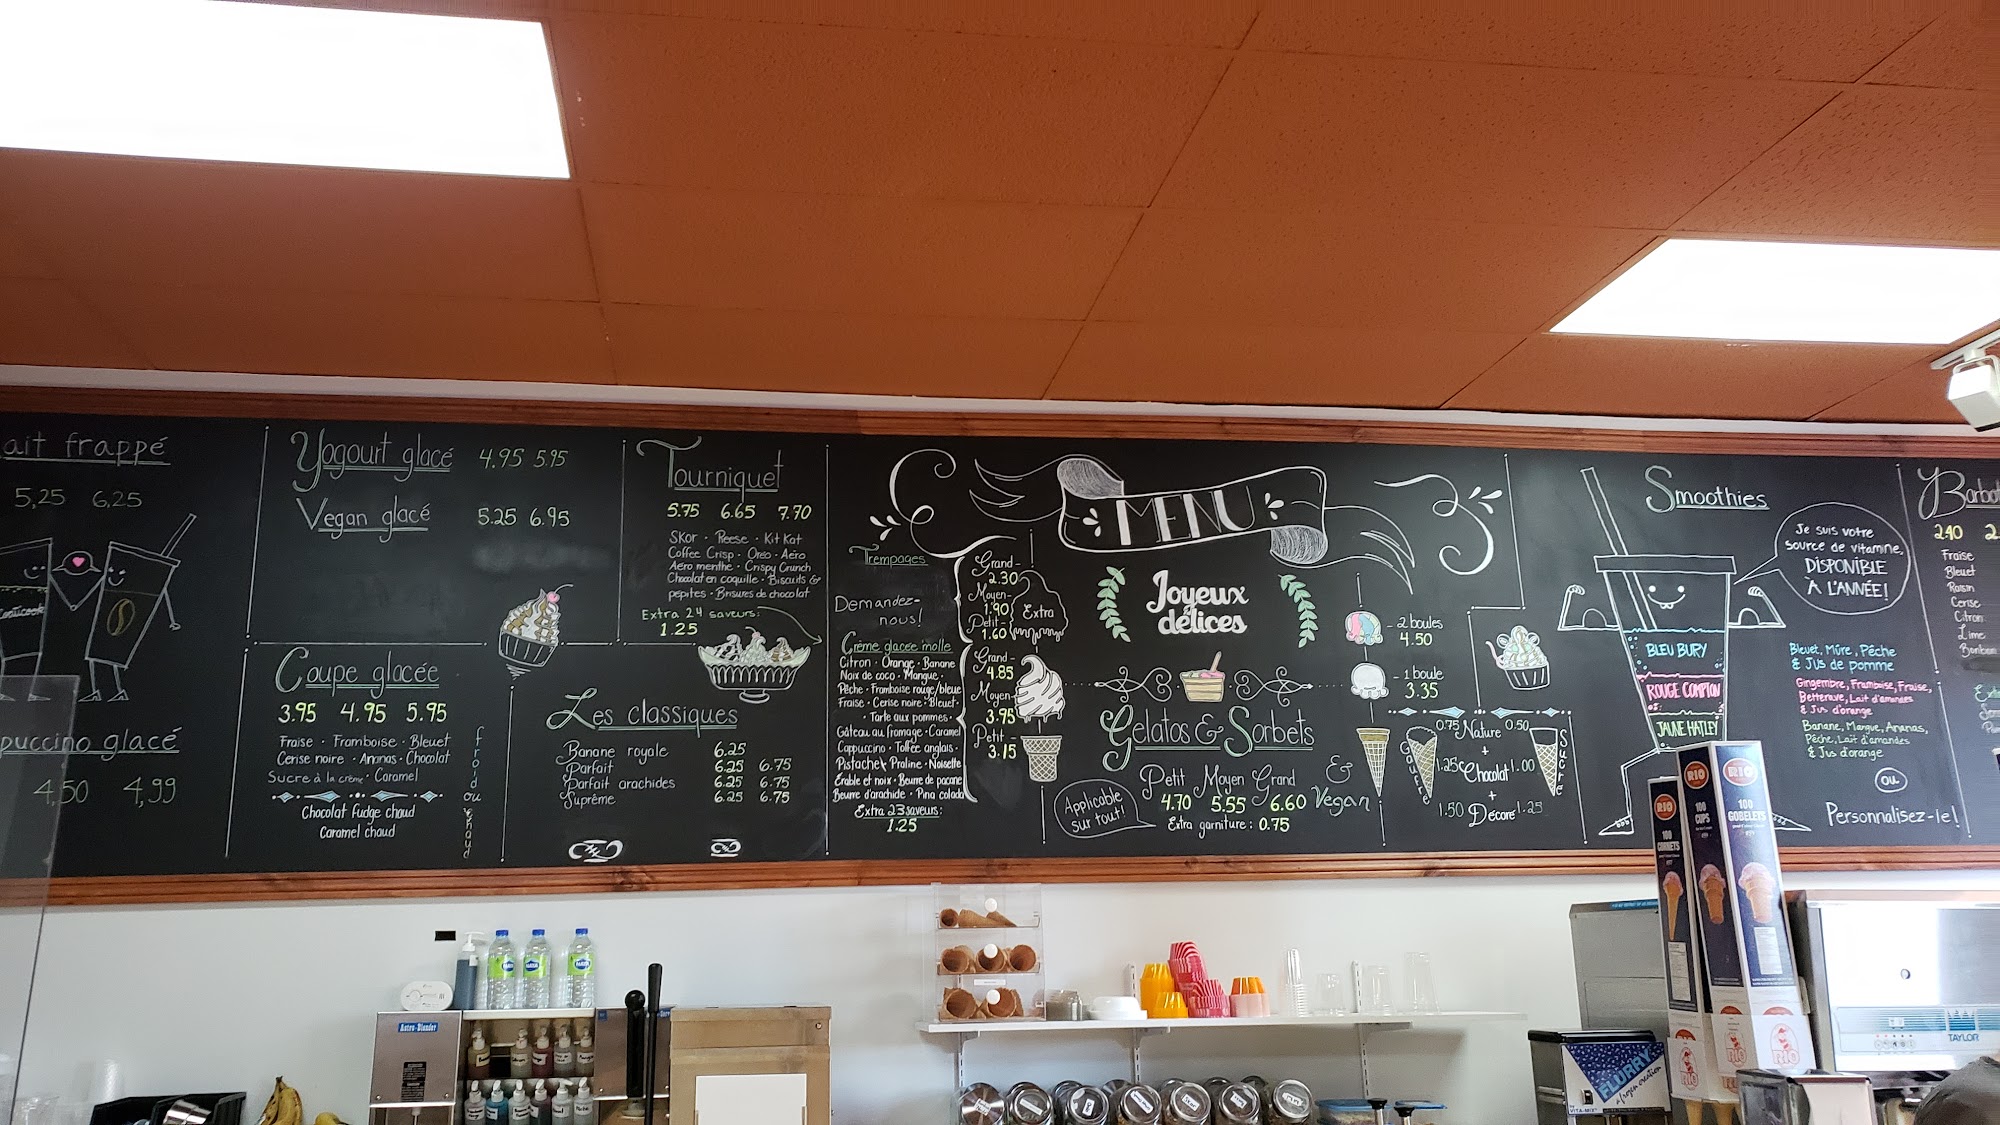 ait frappé
5,25 6,25
puccino glacé
4,50 4,99
Yogourt glacé 4.95 5.95
Vegan glacé 5.25 6.95
Coupe glacée
3.95 4.95 5.95
Fraise · Framboise · Bleuet
Cerise noire · Ananas · Chocolat
Sucre à la crème · Caramel
Chocolat Fudge chaud
Caramel chaud
froid ou chaud
Tourniquet
5.75 6.65 7.70
SKOR · Reese · Kit Kat
Coffee Crisp · Oreo · Aero
Aero menthe · Crispy Crunch
Chocolat en coquille · Biscuits &
pépites · Brisures de chocolat
Extra 24 saveurs:
1.25
Les classiques
Banane royale 6.25
Parfait 6.25 6.75
Parfait arachides 6.25 6.75
Suprême 6.25 6.75
MENU
Joyeux
délices
Trempages
Demandez-
nous!
Grand -
2.30
Moyen -
1.90
Petit -
1.60
Extra
Crème glacée molle
Citron · Orange · Banane
Noix de coco · Mangue ·
Pêche · Framboise rouge/bleue
Fraise · Cerise noire · Bleuet ·
· Tarte aux pommes ·
Gâteau au fromage · Caramel
Cappuccino · Toffee anglais ·
Pistache · Praline · Noisette
Érable et noix · Beurre de pacane
Beurre d'arachide · Pina colada
Extra 23 saveurs:
1.25
Grand -
4.85
Moyen -
3.95
Petit -
3.15
Gelatos & Sorbets
& Vegan
Petit Moyen Grand
4.70 5.55 6.60
Extra garniture : 0.75
Applicable
sur tout!
- 2 boules
4.50
- 1 boule
3.35
Gaufré
Sucré
0.75 Nature 0.50
+
1.25 Chocolat 1.00
+
1.50 Décoré 1.25
Smoothies
Je suis votre
source de vitamine,
DISPONIBLE
À L'ANNÉE!
BLEU BURY
ROUGE COMPTON
JAUNE HATLEY
Bleuet, Mûre, Pêche
& Jus de pomme
Gingembre, Framboise, Fraise,
Betterave, Lait d'amandes
& Jus d'orange
Banane, Mangue, Ananas,
Pêche, Lait d'amandes
& Jus d'orange
ou
Personnalisez-le!
Barbot
2.40 2.
Fraise
Bleuet
Raisin
Cerise
Citron
Lime
Astro-Blender
RIO
100
CORNETS
RIO
100
CUPS
RIO
100
GOBELETS
RIO
RIO
FLURRY
VITA-MIX
TAYLOR